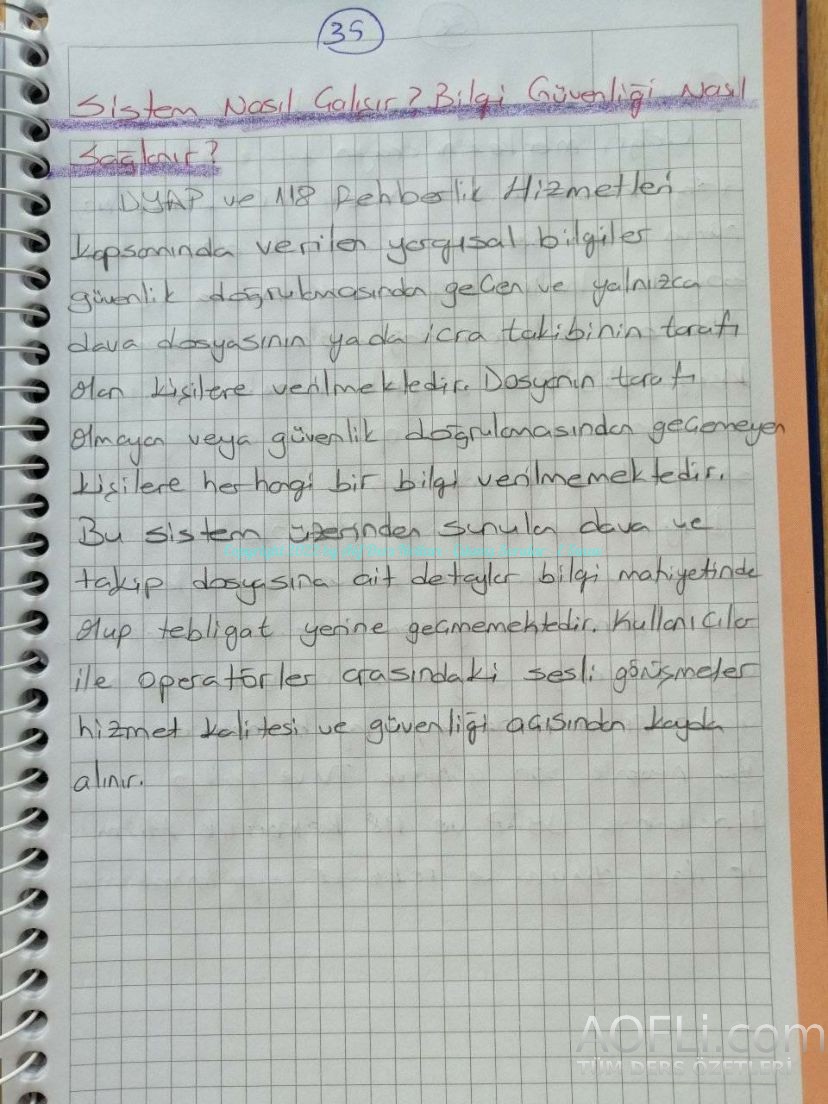 35
Sistem Nasıl Çalışır? Bilgi Güvenliği Nasıl
Sağlanır?
UYAP ve 118 Rehberlik Hizmetleri
kapsamında verilen yargısal bilgiler
güvenlik doğrulmasından geçen ve yalnızca
dava dosyasının yada icra takibinin tarafı
olan kişilere verilmektedir. Dosyanın tarafı
olmayan veya güvenlik doğrulamasından geçemeyen
kişilere herhangi bir bilgi verilmemektedir.
Bu sistem üzerinden sunulan dava ve
takip dosyasına ait detaylar bilgi mahiyetinde
olup tebligat yerine geçmemektedir. Kullanıcılar
ile operatörler arasındaki sesli görüşmeler
hizmet kalitesi ve güvenliği açısından kayda
alınır.
AOFLi.com
TÜM DERS ÖZETLERİ